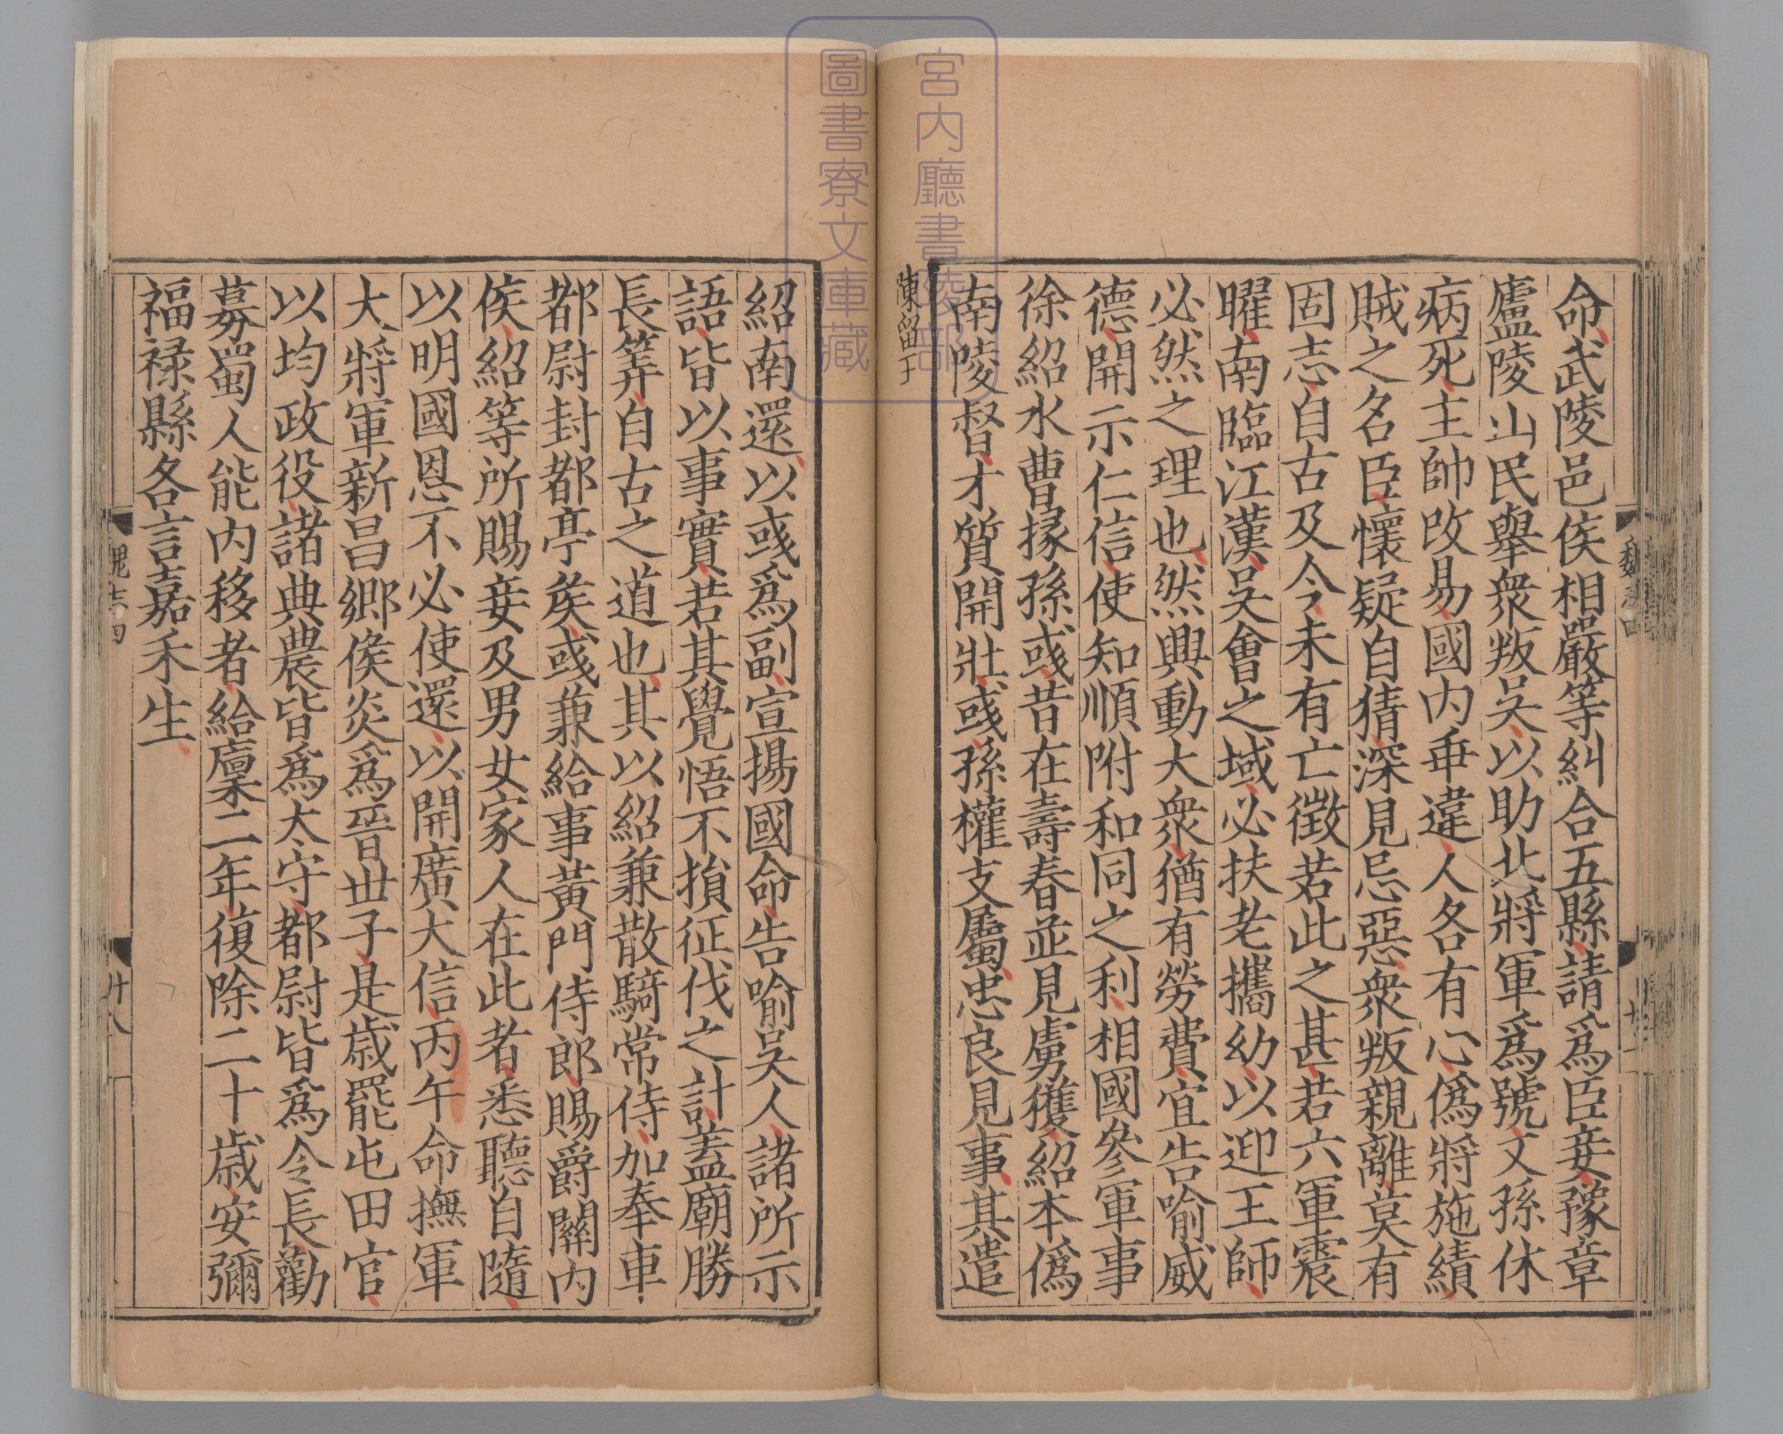 命武陵邑侯相嚴等糾合五縣請爲臣妾豫章
廬陵山民舉衆叛吳以助北將軍爲號又孫休
病死主帥改易國內乖違人各有心僞將施績
賊之名臣懷疑自猜深見忌惡衆叛親離莫有
固志自古及今未有亡徵若此之甚若六軍震
曜南臨江漢吳會之域必扶老攜幼以迎王師
必然之理也然興動大衆猶有勞費宜告喻威
德開示仁信使知順附和同之利相國參軍事
徐紹水曹掾孫彧昔在壽春並見虜獲紹本僞
南陵督才質開壯彧孫權支屬忠良見事其遣
陳留王
紹南還以彧爲副宣揚國命告喻吳人諸所示
語皆以事實若其覺悟不損征伐之計蓋廟勝
長筭自古之道也其以紹兼散騎常侍加奉車
都尉封都亭侯彧兼給事黃門侍郎賜爵關內
侯紹等所賜妾及男女家人在此者悉聽自隨
以明國恩不必使還以開廣大信丙午命撫軍
大將軍新昌鄉侯炎爲晉世子是歲罷屯田官
以均政役諸典農皆爲太守都尉皆爲令長勸
募蜀人能內移者給廩二年復除二十歲安彌
福禄縣各言嘉禾生
魏志四
廿八
宮內廳書陵部
圖書寮文庫藏